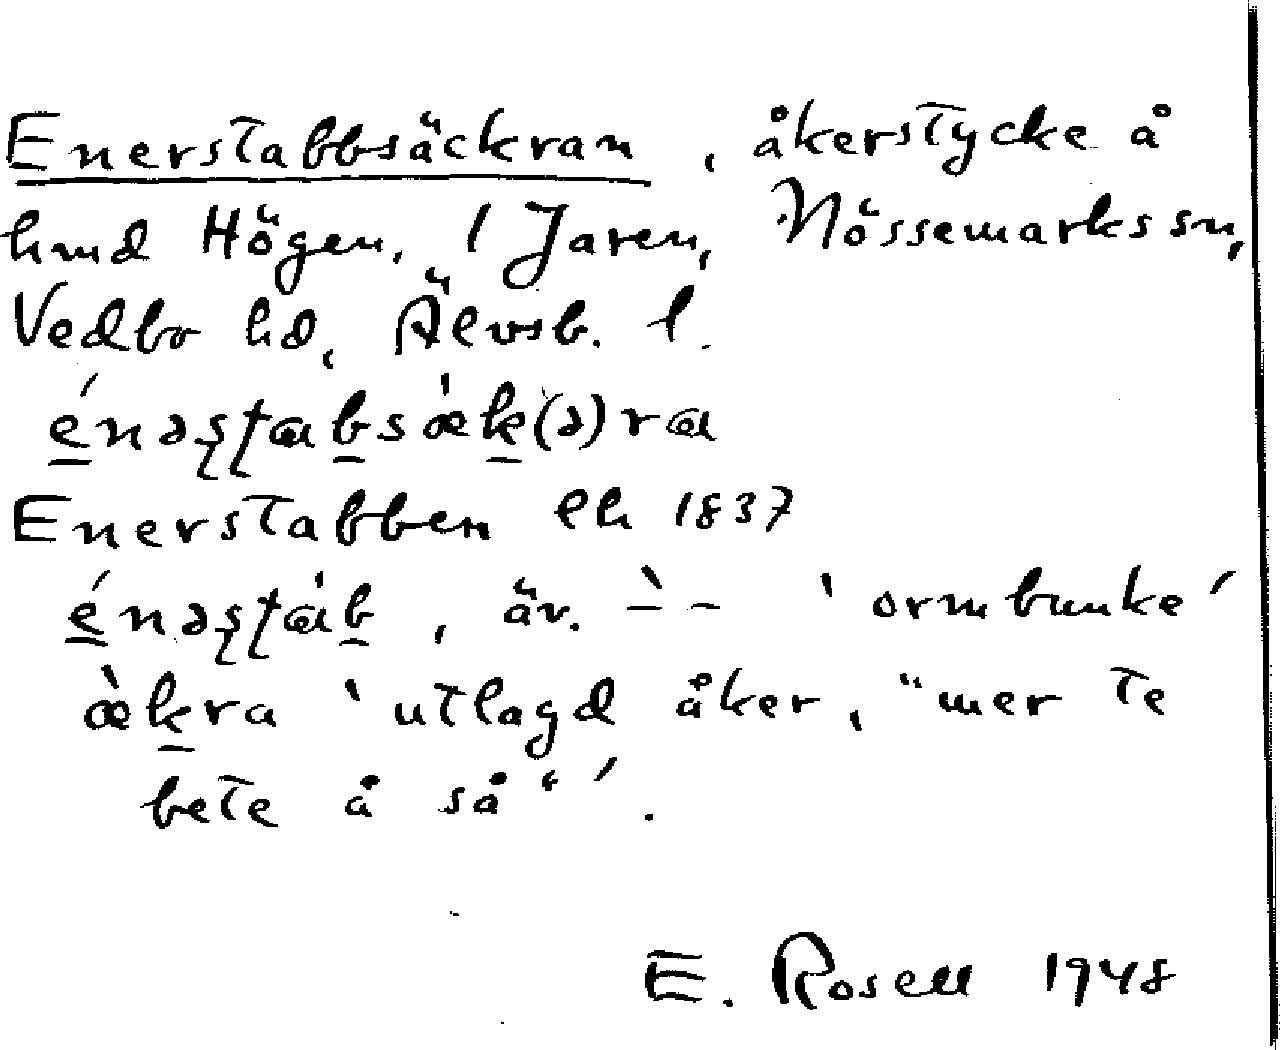 Enerstabbsäckran, åkerstycke å
hmd Högen, 1 Jaren, Nössemarks sn,
Vedbo hd, Älvsb. l.
énəʂʈabsæ̀k(ə)ra
Enerstabben Eh 1837
énəʂʈàb, äv. `– – 'ormbunke'
æ̀kra 'utlagd åker, "mer te
bete å så"'.
E. Rosell 1948